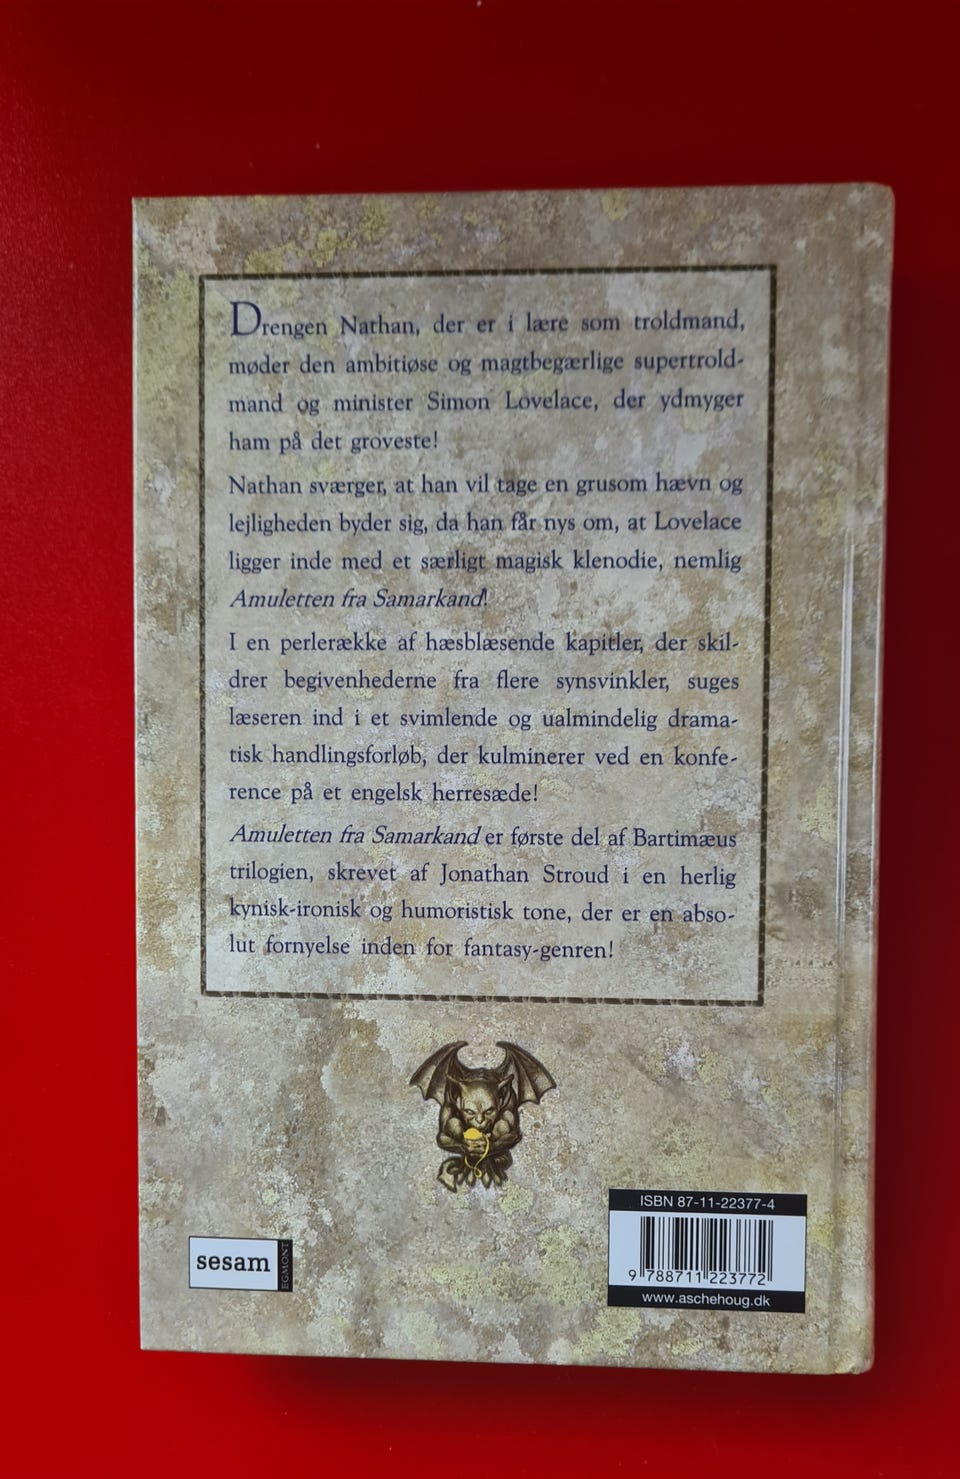 Drengen Nathan, der er i lære som troldmand,
møder den ambitiøse og magtbegærlige supertrold-
mand og minister Simon Lovelace, der ydmyger
ham på det groveste!
Nathan sværger, at han vil tage en grusom hævn og
lejligheden byder sig, da han får nys om, at Lovelace
ligger inde med et særligt magisk klenodie, nemlig
Amuletten fra Samarkand!
I en perlerække af hæsblæsende kapitler, der skil-
drer begivenhederne fra flere synsvinkler, suges
læseren ind i et svimlende og ualmindelig drama-
tisk handlingsforløb, der kulminerer ved en konfe-
rence på et engelsk herresæde!
Amuletten fra Samarkand er første del af Bartimæus
trilogien, skrevet af Jonathan Stroud i en herlig
kynisk-ironisk og humoristisk tone, der er en abso-
lut fornyelse inden for fantasy-genren!
sesam
EGMONT
ISBN 87-11-22377-4
9 788711 223772
www.aschehoug.dk